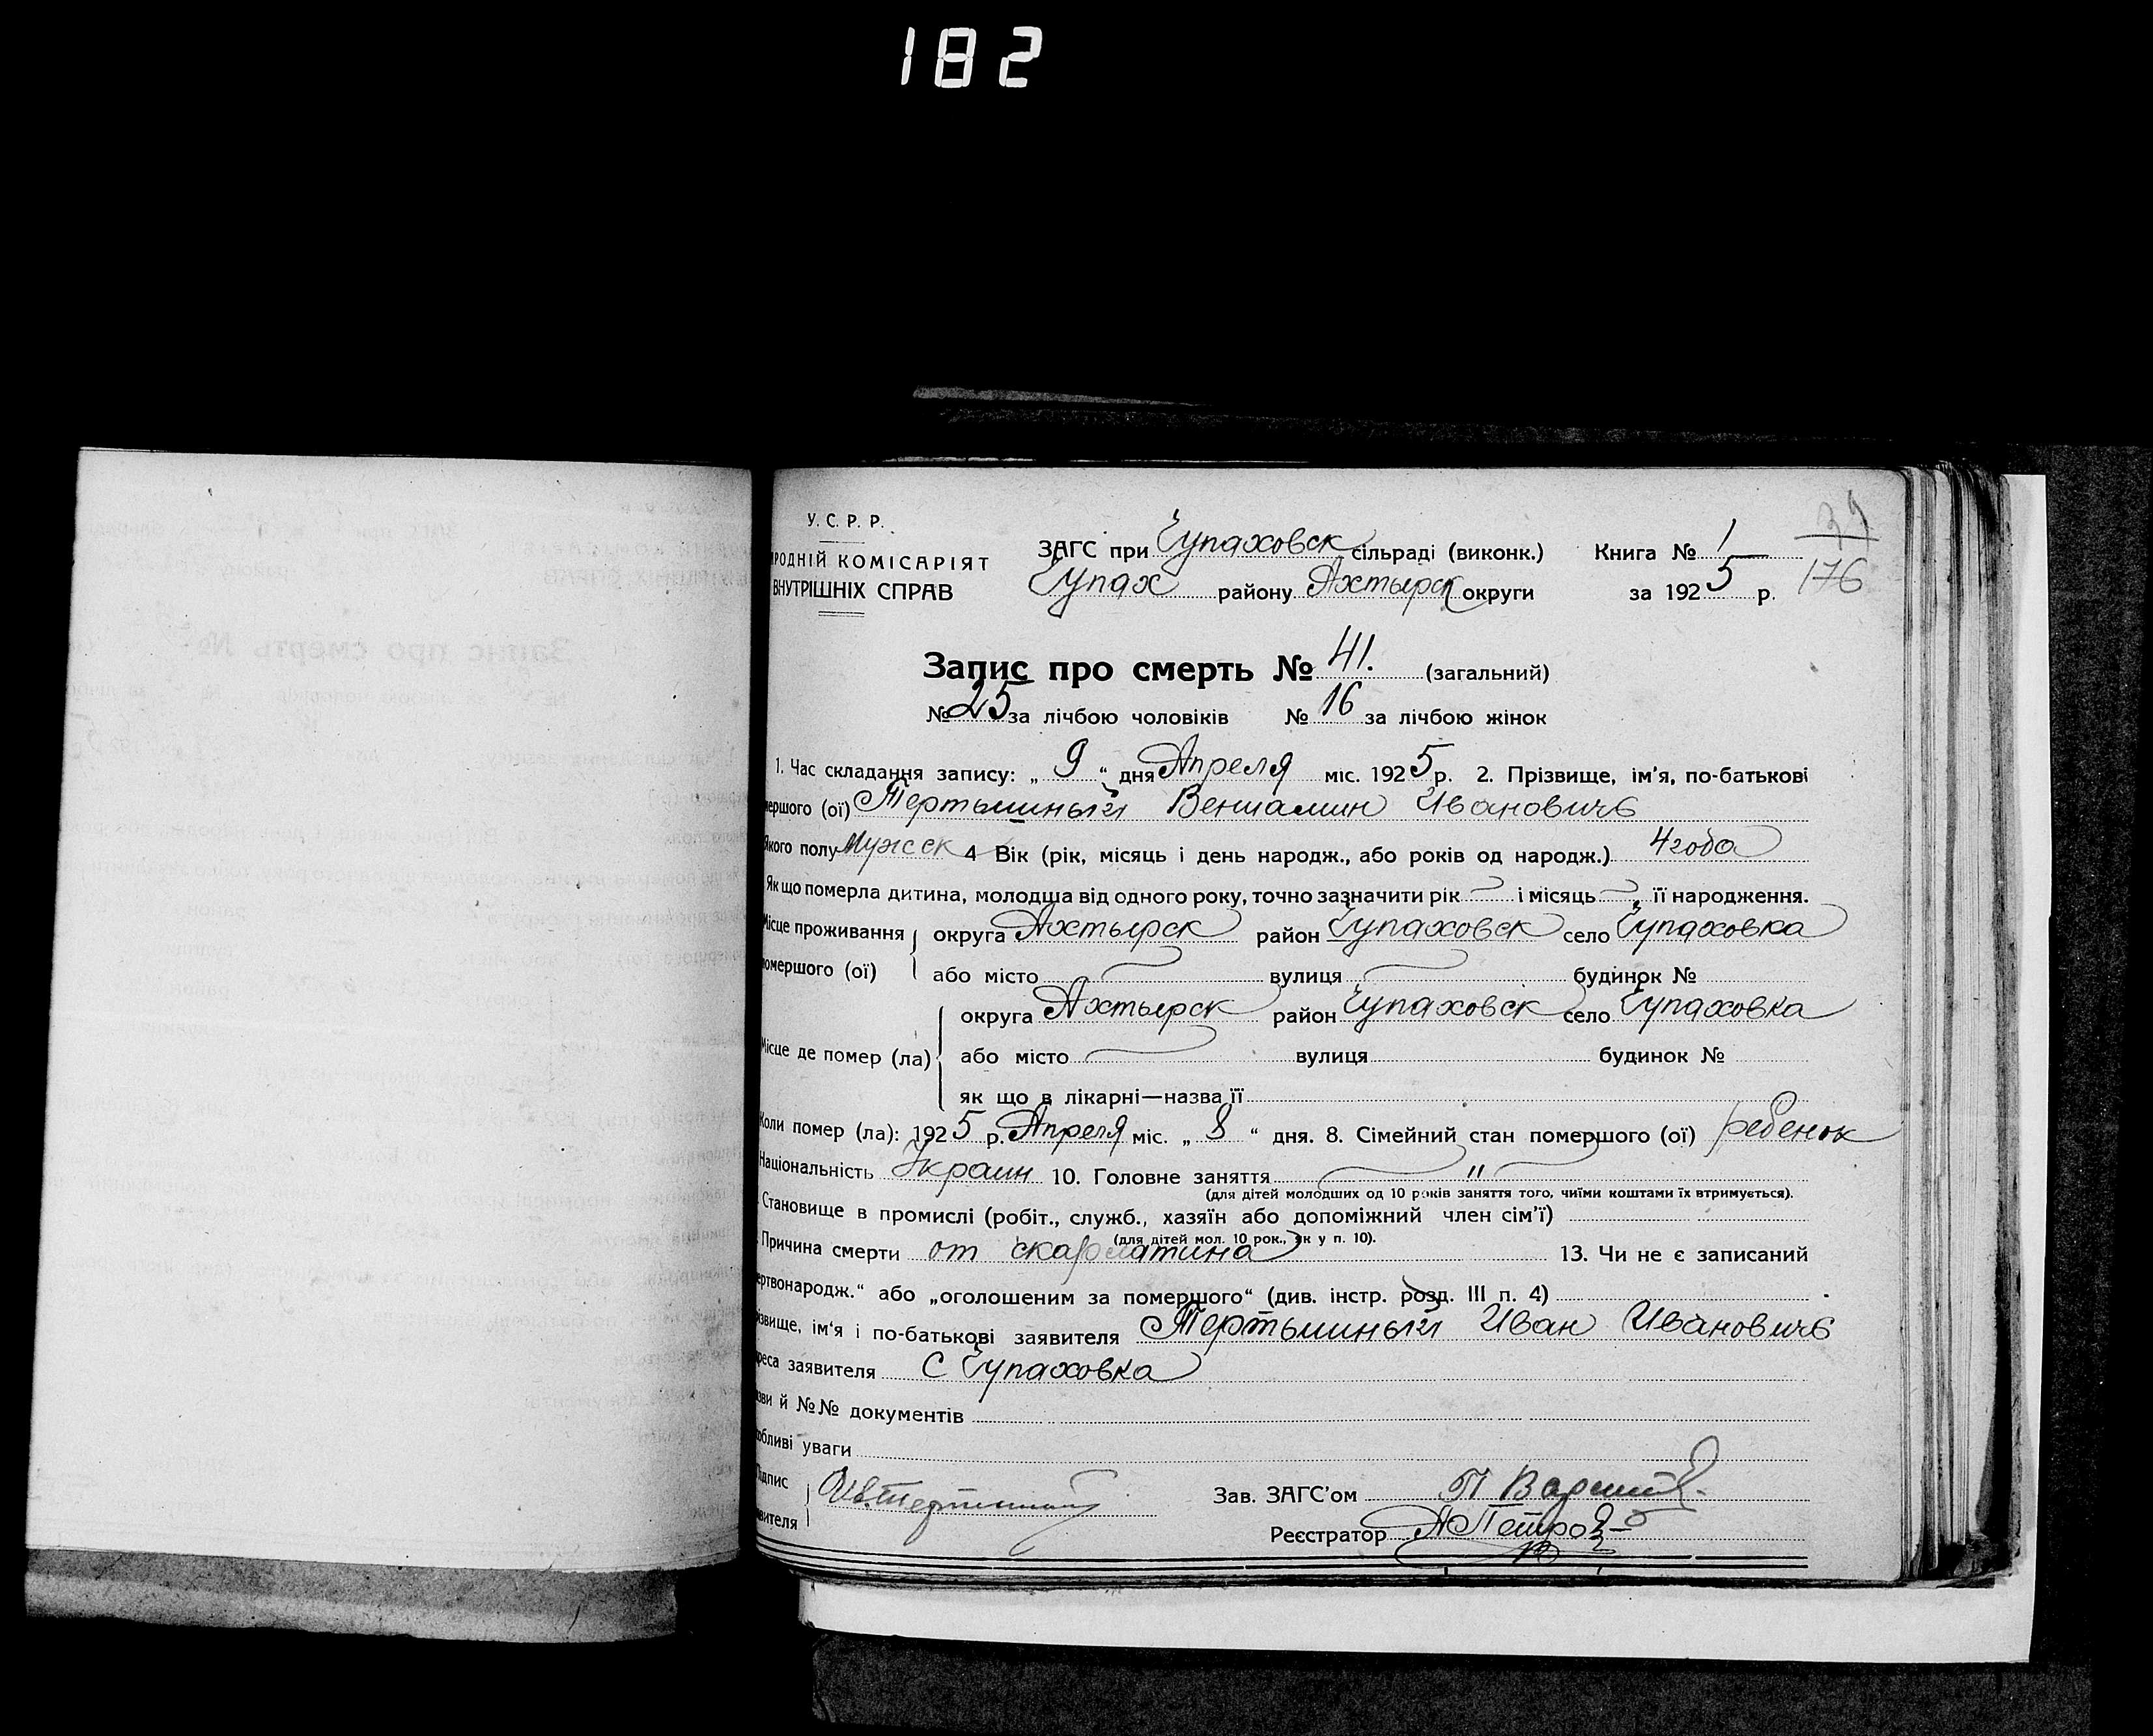 182
У. С. Р. Р.
РОДНІЙ КОМІСАРІЯТ
ВНУТРІШНІХ СПРАВ
ЗАГС при Чупаховск сільраді (виконк.) Книга № 1
Чупах району Ахтырск округи за 1925 р.
39
176
Запис про смерть № 41. (загальний)
№ 25 за лічбою чоловіків № 16 за лічбою жінок
1. Час складання запису: „ 9 “ дня Апреля міс. 1925 р. 2. Прізвище, ім'я, по-батькові
мершого (ої) Тертышный Вениамин Ивановичъ
Якого полу Мужск 4 Вік (рік, місяць і день народж., або років од народж.) 4 года
Як що померла дитина, молодша від одного року, точно зазначити рік і місяць її народження.
Місце проживання округа Ахтырск район Чупаховск село Чупаховка
помершого (ої) або місто вулиця будинок №
округа Ахтырск район Чупаховск село Чупаховка
Місце де помер (ла) або місто вулиця будинок №
як що в лікарні—назва її
Коли помер (ла): 1925 р. Апреля міс. „ 8 “ дня. 8. Сімейний стан помершого (ої) ребенок
Національність Украин 10. Головне заняття "
(для дітей молодших од 10 років заняття того, чиїми коштами їх втримується).
Становище в промислі (робіт., служб., хазяїн або допоміжний член сім'ї)
(для дітей мол. 10 рок., як у п. 10).
Причина смерти от скарлатина 13. Чи не є записаний
ертвонародж.“ або „оголошеним за помершого“ (див. інстр. розд. III п. 4)
ізвище, ім'я і по-батькові заявителя Тертышный Иван Ивановичъ
реса заявителя С Чупаховка
зви й №№ документів
обливі уваги
Підпис
явителя
Ив. Тертышный
Зав. ЗАГС'ом П
Реєстратор А Петров